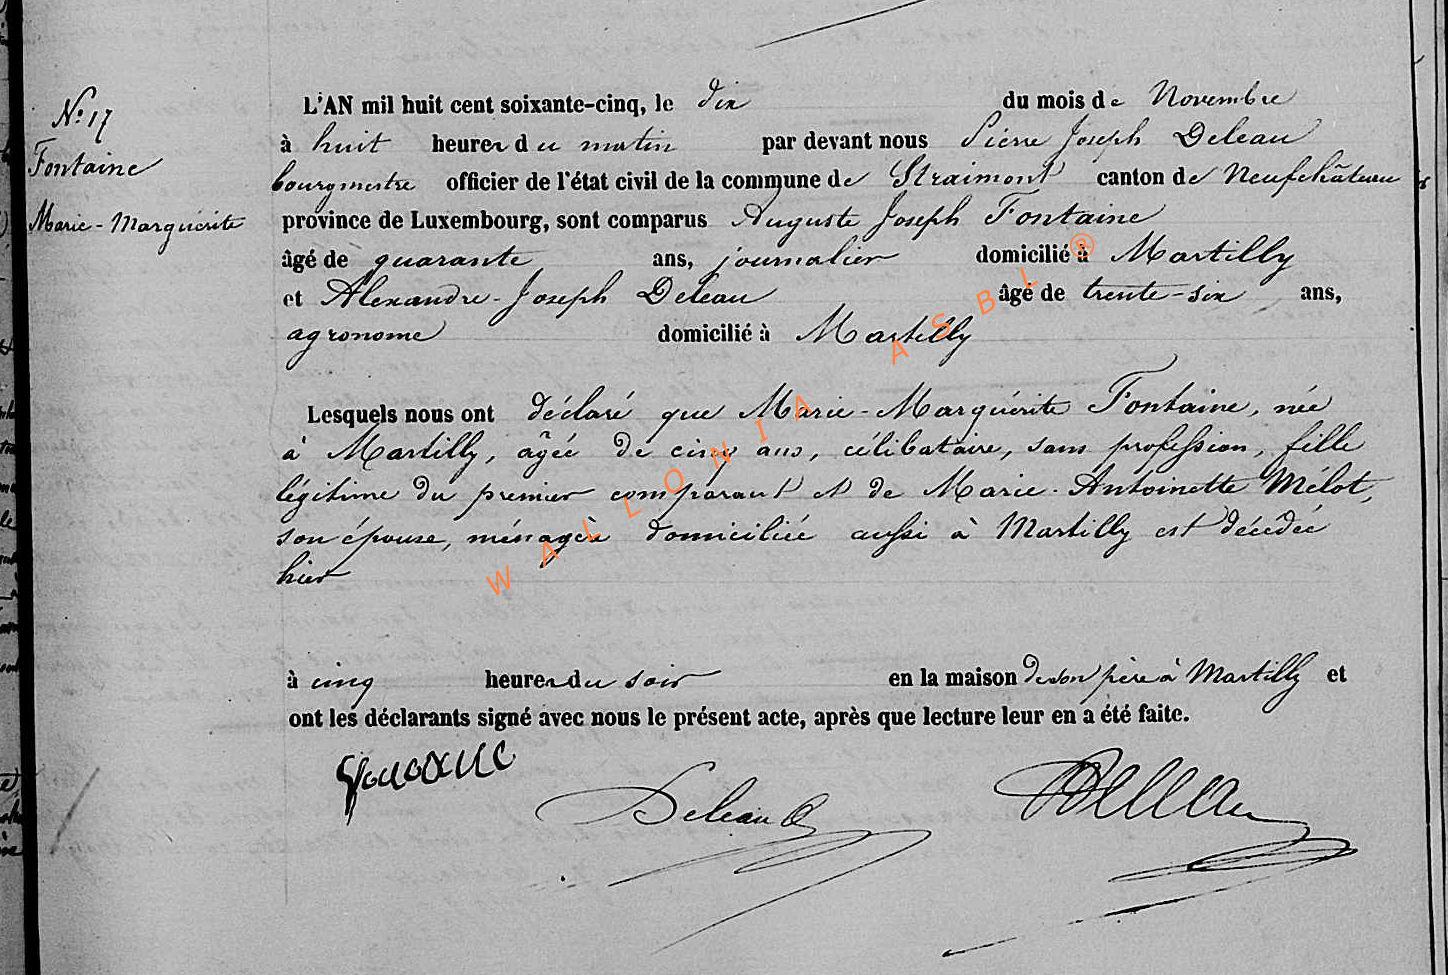 N.o 17
Fontaine
Marie-Marguérite
L'AN mil huit cent soixante-cinq, le dix du mois de Novembre
à huit heures du matin par devant nous Pierre Joseph Deleau
bourgmestre officier de l'état civil de la commune de Straimont canton de Neufchâteau
province de Luxembourg, sont comparus Auguste Joseph Fontaine
âgé de quarante ans, journalier domicilié à Martilly
et Alexandre-Joseph Deleau âgé de trente-six ans,
agronome domicilié à Martilly
Lesquels nous ont déclaré que Marie-Marguérite Fontaine, née
à Martilly, âgée de cinq ans, célibataire, sans profession, fille
légitime du premier comparant et de Marie-Antoinette Mélot,
son épouse, ménagère domiciliée aussi à Martilly est décédée
hier
à cinq heures du soir en la maison de son père à Martilly et
ont les déclarants signé avec nous le présent acte, après que lecture leur en a été faite.
Deleau
WALLONIA ASBL ®